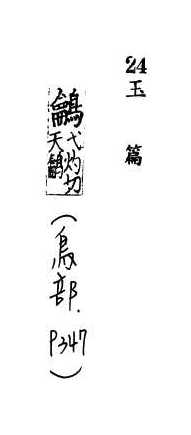 24 玉篇
鸙 弋灼切 天鸙 (鳥部. P347)